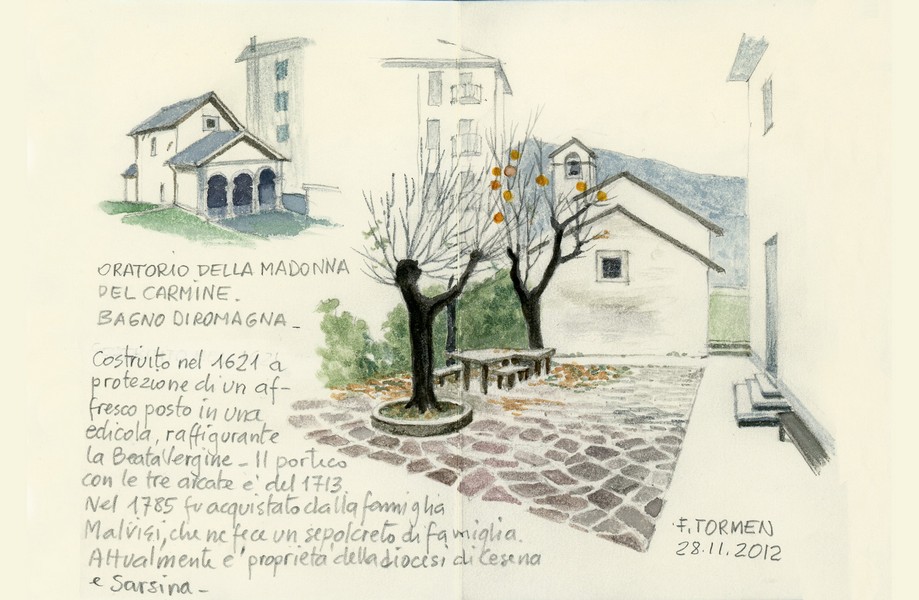 ORATORIO DELLA MADONNA
DEL CARMINE.
BAGNO DI ROMAGNA_
Costruito nel 1621 a
protezione di un af-
fresco posto in una
edicola, raffigurante
la Beata Vergine_ Il portico
con le tre arcate e' del 1713
Nel 1785 fu acquistato dalla famiglia
Malvisi, che ne fece un sepolcreto di famiglia.
Attualmente e' proprietà della diocesi di Cesena
e Sarsina_
F. TORMEN
28.11.2012